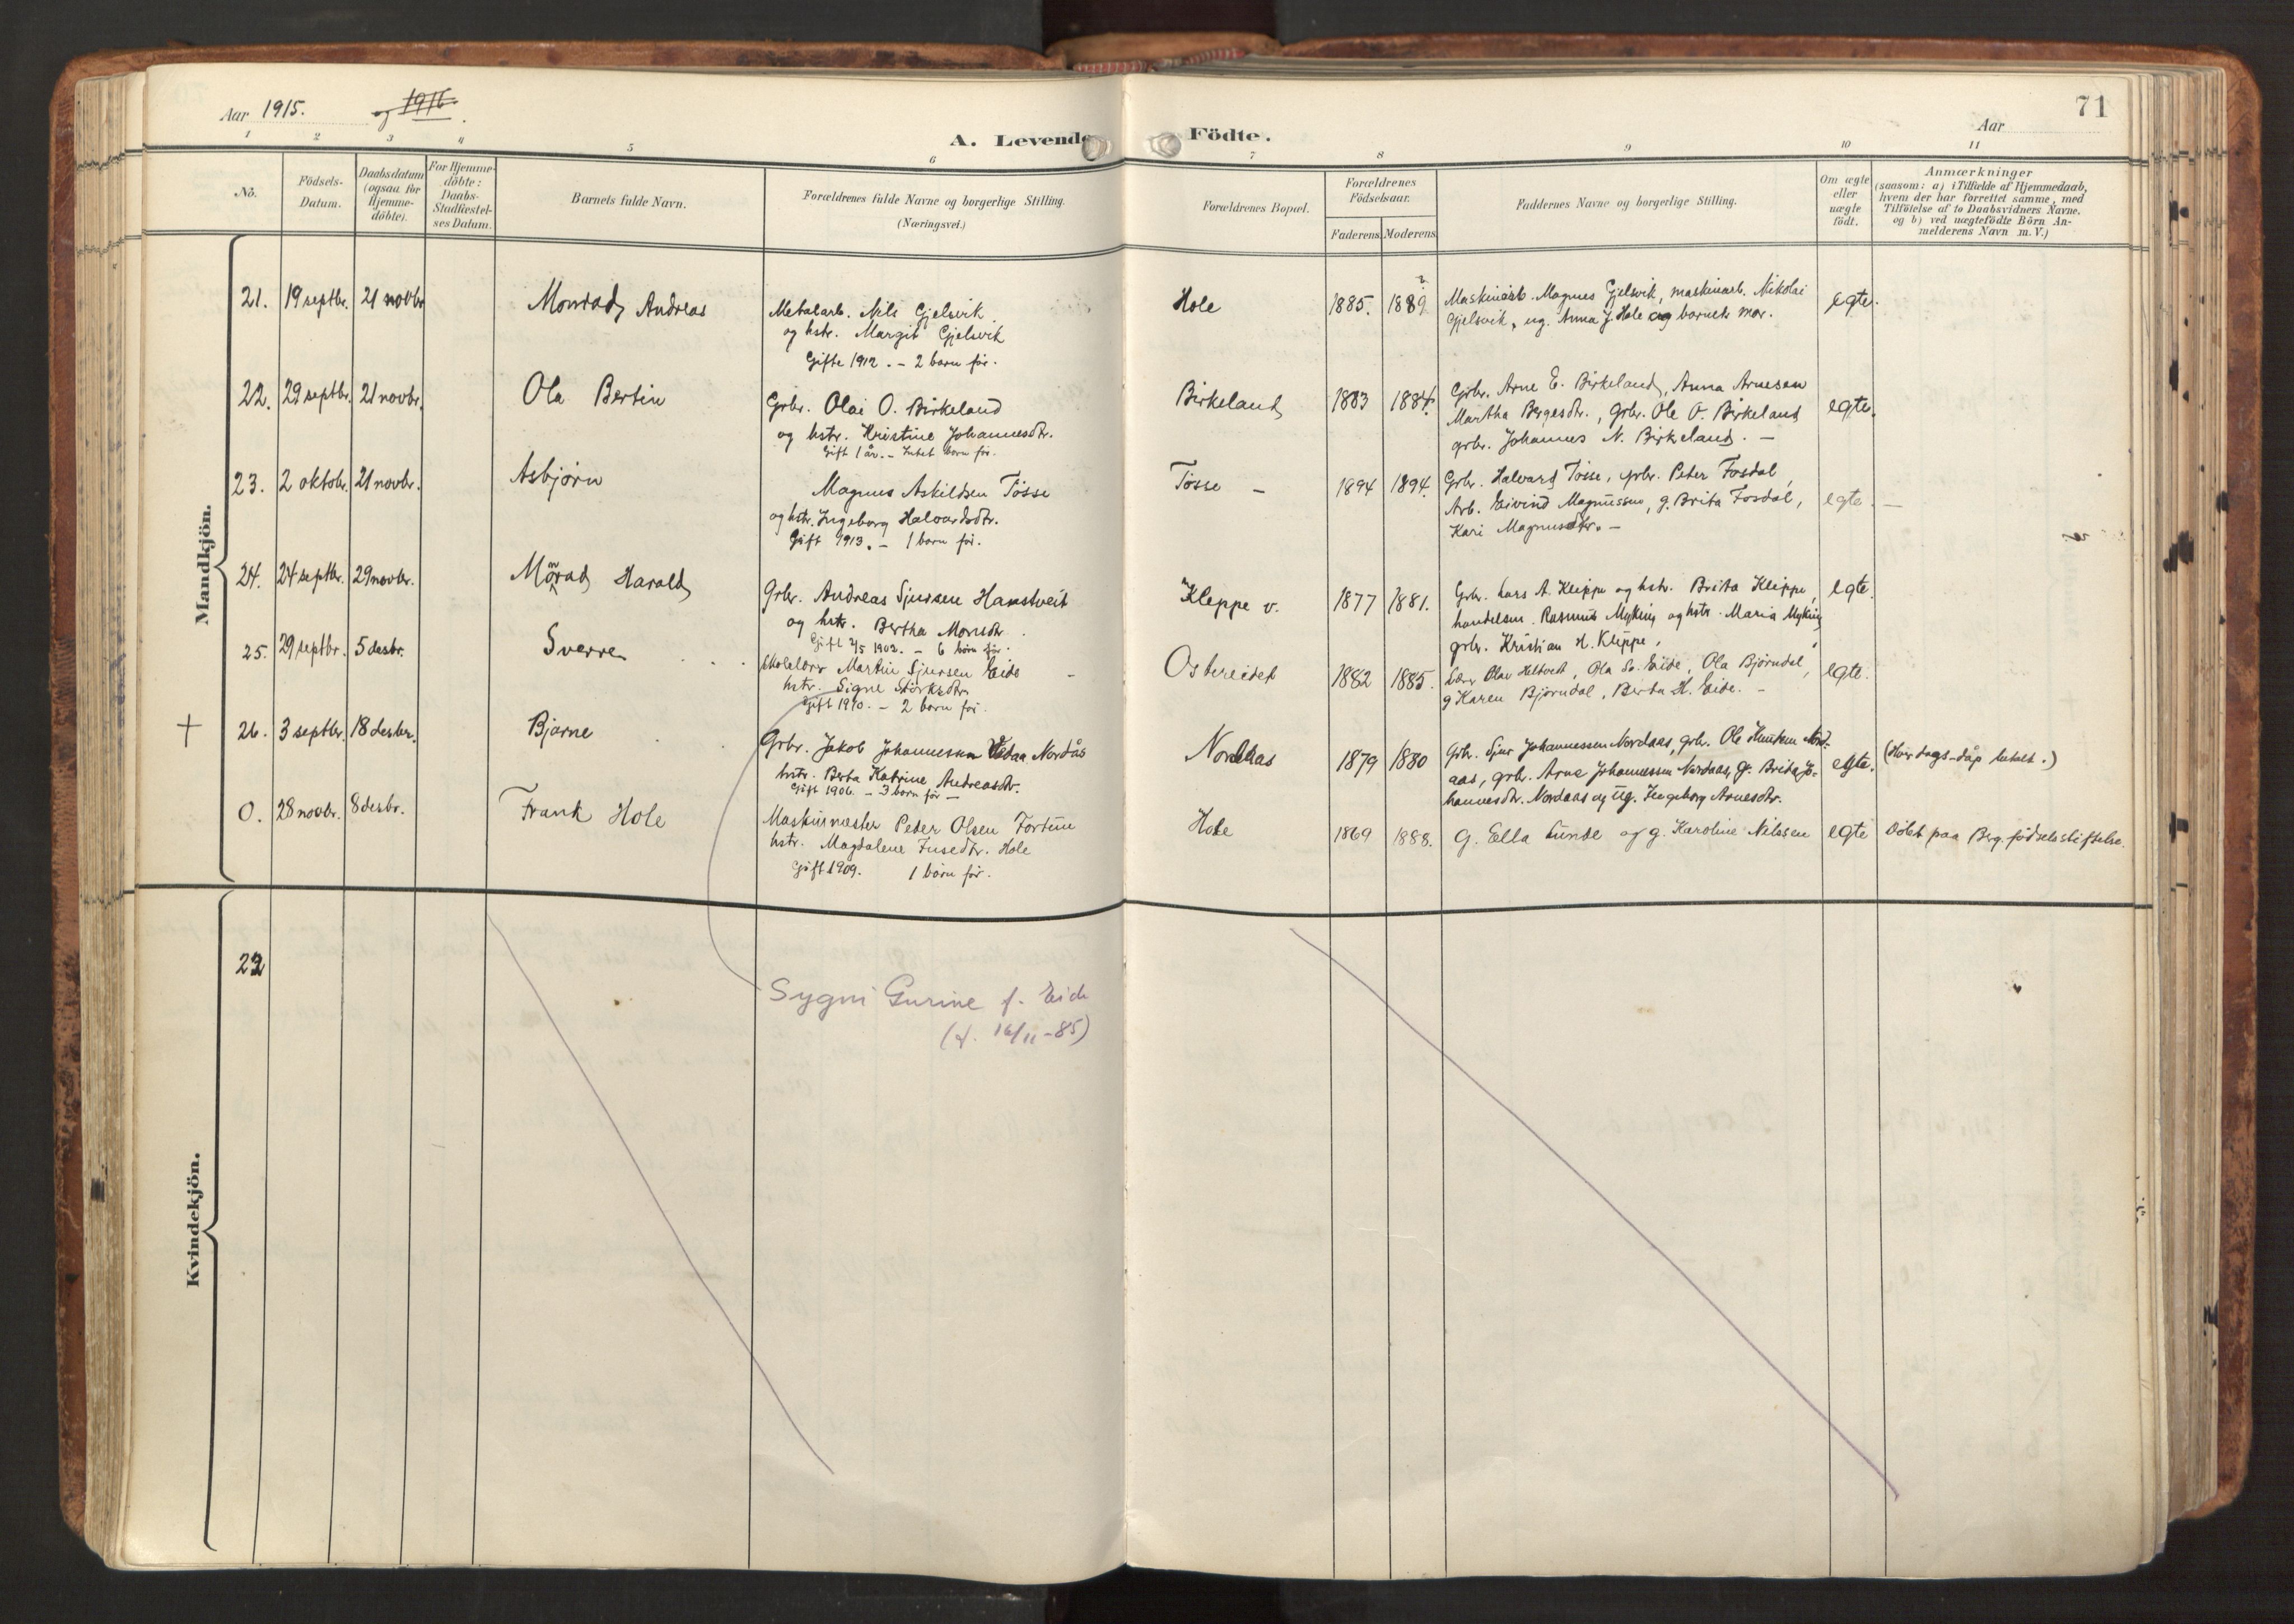 Aar 1915. og 1916.
A. Levende Födte.
Aar
71
1 2 3 4 5 6 7 8 9 10 11
No.
Födsels-Datum.
Daabsdatum (ogsaa for Hjemme-döbte).
For Hjemme-döbte: Daabs-Stadfæstel-ses Datum.
Barnets fulde Navn.
Forældrenes fulde Navne og borgerlige Stilling.
(Næringsvei.)
Forældrenes Bopæl.
Forældrenes Födselsaar.
Faderens Moderens
Faddernes Navne og borgerlige Stilling.
Om ægte eller uægte födt.
Anmærkninger
(saasom: a) i Tilfælde af Hjemmedaab,
hvem der har forrettet samme, med
Tilföielse af to Daabsvidners Navne.
og b) ved uægtefödte Börn An-
melderens Navn m. V.)
Mandkjön.
21. 19 septbr. 21 novbr Monrad Andreas
Metalarb. Nils Gjelsvik
og hstr. Margit Gjelsvik
Gifte 1912. – 2 barn før.
Hole 1885. 1889 ?
Maskinarb. Magnus Gjelsvik, maskinarb. Nikolai
Gjelsvik, ug. Anna J. Hole og barnets mor.
egte.
22. 29 septbr. 21 novbr. Ola Bertin
Grbr. Olai O. Birkeland
og hstr. Kristine Johannesdtr.
Gift 1 år. – Intet barn før.
Birkeland 1883 1884.
Grbr. Arne E. Birkeland, Anna Arnesen
Martha Bergesdtr., Grbr. Ole O. Birkeland
grbr. Johannes N. Birkeland. –
egte.
23. 2 oktobr. 21 novbr. Asbjørn
Magnus Askildsen Tøsse
og hstr. Ingeborg Halvardsdtr.
Gift 1913. – 1 barn før.
Tøsse – 1894 1894.
Grbr. Halvard Tøsse, grbr. Peter Fosdal,
Arb. Eivind Magnussen, g. Brita Fosdal,
Kari Magnusdtr. –
egte. –
24. 24 septbr. 29 novbr. Monrad Harald
Grbr. Andreas Sjursen Hanstveit
og hstr. Bertha Monsdtr.
Gift 2/5 1902. – 6 børn før.
Kleppe v. 1877 1881.
Grbr. Lars A. Kleppe og hstr. Brita Kleppe,
handelsm. Rasmus Myking og hstr. Maria Myking
grbr. Kristian H. Kleppe,
egte.
25. 29 septbr. 5 desbr. Sverre
Skolelærer Martin Sjursen Eide
hstr. Signe Størksdtr.
Gift 1910. – 2 barn før.
Ostereidet 1882 1885.
Lær. Olav Heltveit, Ola So. Eide, Ola Bjørndal,
g Karen Bjørndal, Berta H. Eide. –
egte.
† 26. 3 septbr. 18 desbr. Bjarne
Grbr. Jakob Johannesen Nordås
hstr. Berta Katrine Andreasdtr.
Gift 1906. – 3 barn før –
Nordaas 1879 1880
Grbr. Sjur Johannessen Nordaas, grbr. Ole Knutsen Nord-
aas, grbr. Arne Johannessen Nordaas, g. Brita Jo-
hannesdtr. Nordaas og ug. Ingeborg Arnesdtr.
egte.
(Hverdags-dåp betalt.)
0. 28 novbr. 8 desbr. Frank Hole
Maskinmester Peder Olsen Fortun
hstr. Magdalene Fusedtr. Hole
Gift 1909. 1 barn før.
Hole 1869 1888.
G. Ella Lunde og g. Karoline Nilssen
egte
Døbt paa Berg. fødselsstiftelse.
Kvindekjön.
22
Sygni Gurine f. Eide
(f. 16/11-85)